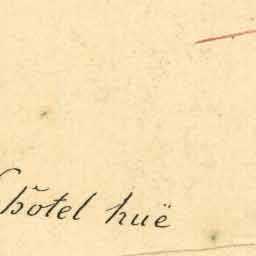 hőtel huë